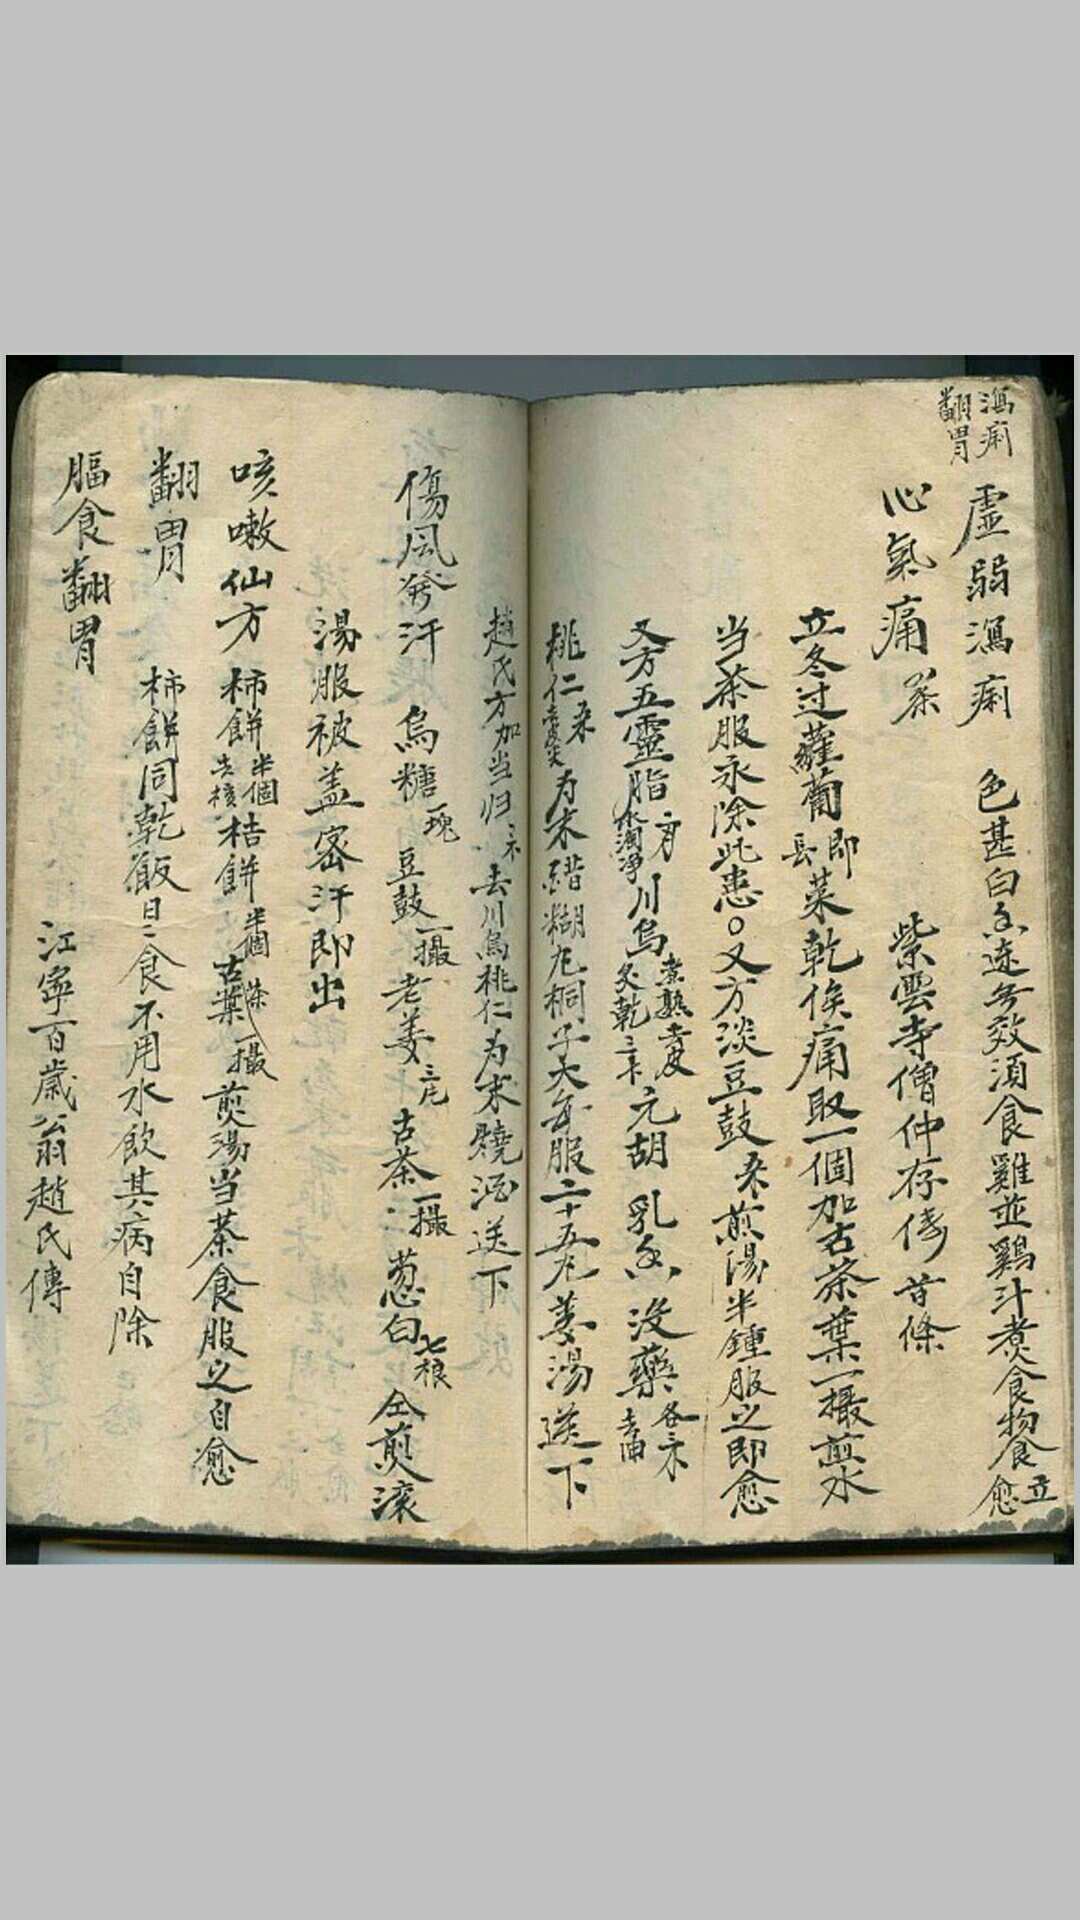 瀉痢
翻胃
虛弱瀉痢 色甚白 須食雞並鷄汁煮食物食立愈
心氣痛茶 紫雲寺僧仲存 昔條
立冬过蘿蔔即長菜乾俟痛取一個加古茶葉一撮煎水
当茶服永除此患○又方淡豆鼓 煎湯半鍾服之即愈
又方五靈脂 水淘淨 川烏煮熟去皮炙乾 元胡 乳香 没藥各 去油
桃仁 去皮尖 为末醋糊丸桐子大每服二十五丸姜湯送下
趙氏方加当归 去川烏桃仁为末燒酒送下
傷風發汗 烏糖一塊 豆鼓一撮 老姜三片 古茶一撮 葱白七根 仝煎滚
湯服被盖密汗即出
咳嗽仙方 柿餅半個去核 桔餅半個 古茶葉一撮 煎湯当茶食服之自愈
翻胃 柿餅同乾飯日日食不用水飲其病自除
膈食翻胃 江寧百歲翁趙氏傳